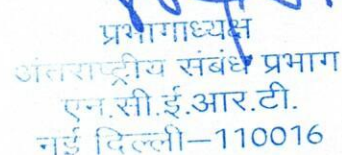 प्रभागाध्यक्ष
अंतराष्ट्रीय संबंध प्रभाग
एन.सी.ई.आर.टी.
नई दिल्ली–110016